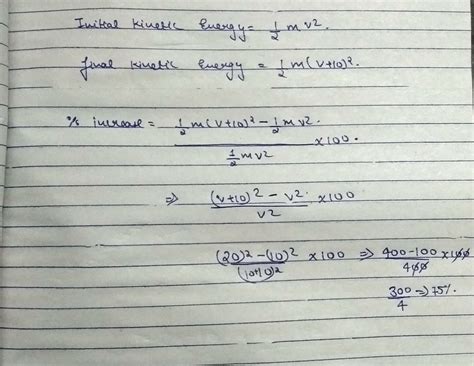 Initial kinetic Energy = 1/2 m v2.
final kinetic energy = 1/2 m(v+10)2.
% increase = (1/2 m(v+10)2 - 1/2 m v2.)/(1/2 m v2) x100.
=> ((v+10)2 - v2.)/v2 x100
((20)2 - (10)2)/(10+10)2 x100 => (400-100)/400 x100
300/4 => 75%.